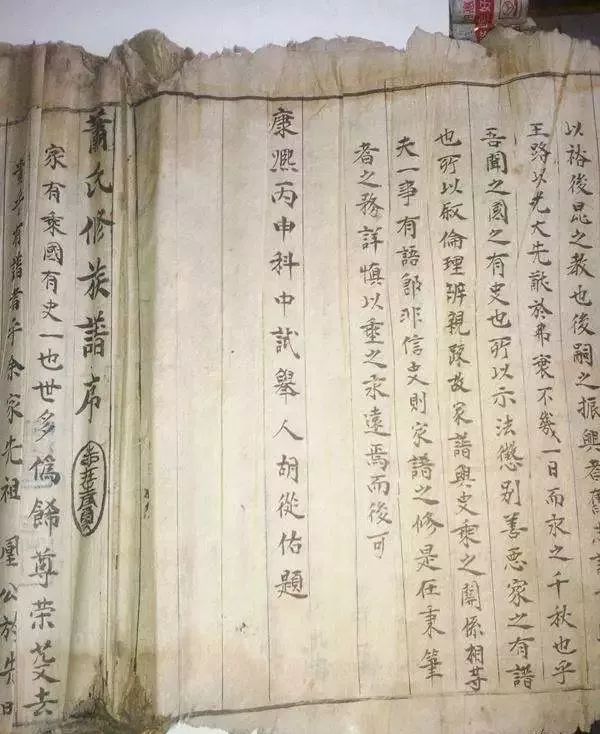 以裕後昆之教也後嗣之振興者
王路以光大先猷於弗衰不幾一日而永之千秋也乎
吾聞之國之有史也所以示法懲别善恶家之有譜
也所以叙倫理辨親踈故家譜與史乘之關係相等
夫一事有語郎非信史則家譜之修是在秉筆
者之務詳慎以垂之永遠焉而後可
康熙丙申科中試舉人胡從佑題
蕭氏修族譜序
家有乘國有史一也世多偽餙尊荣芟去
乎余家先祖 公於